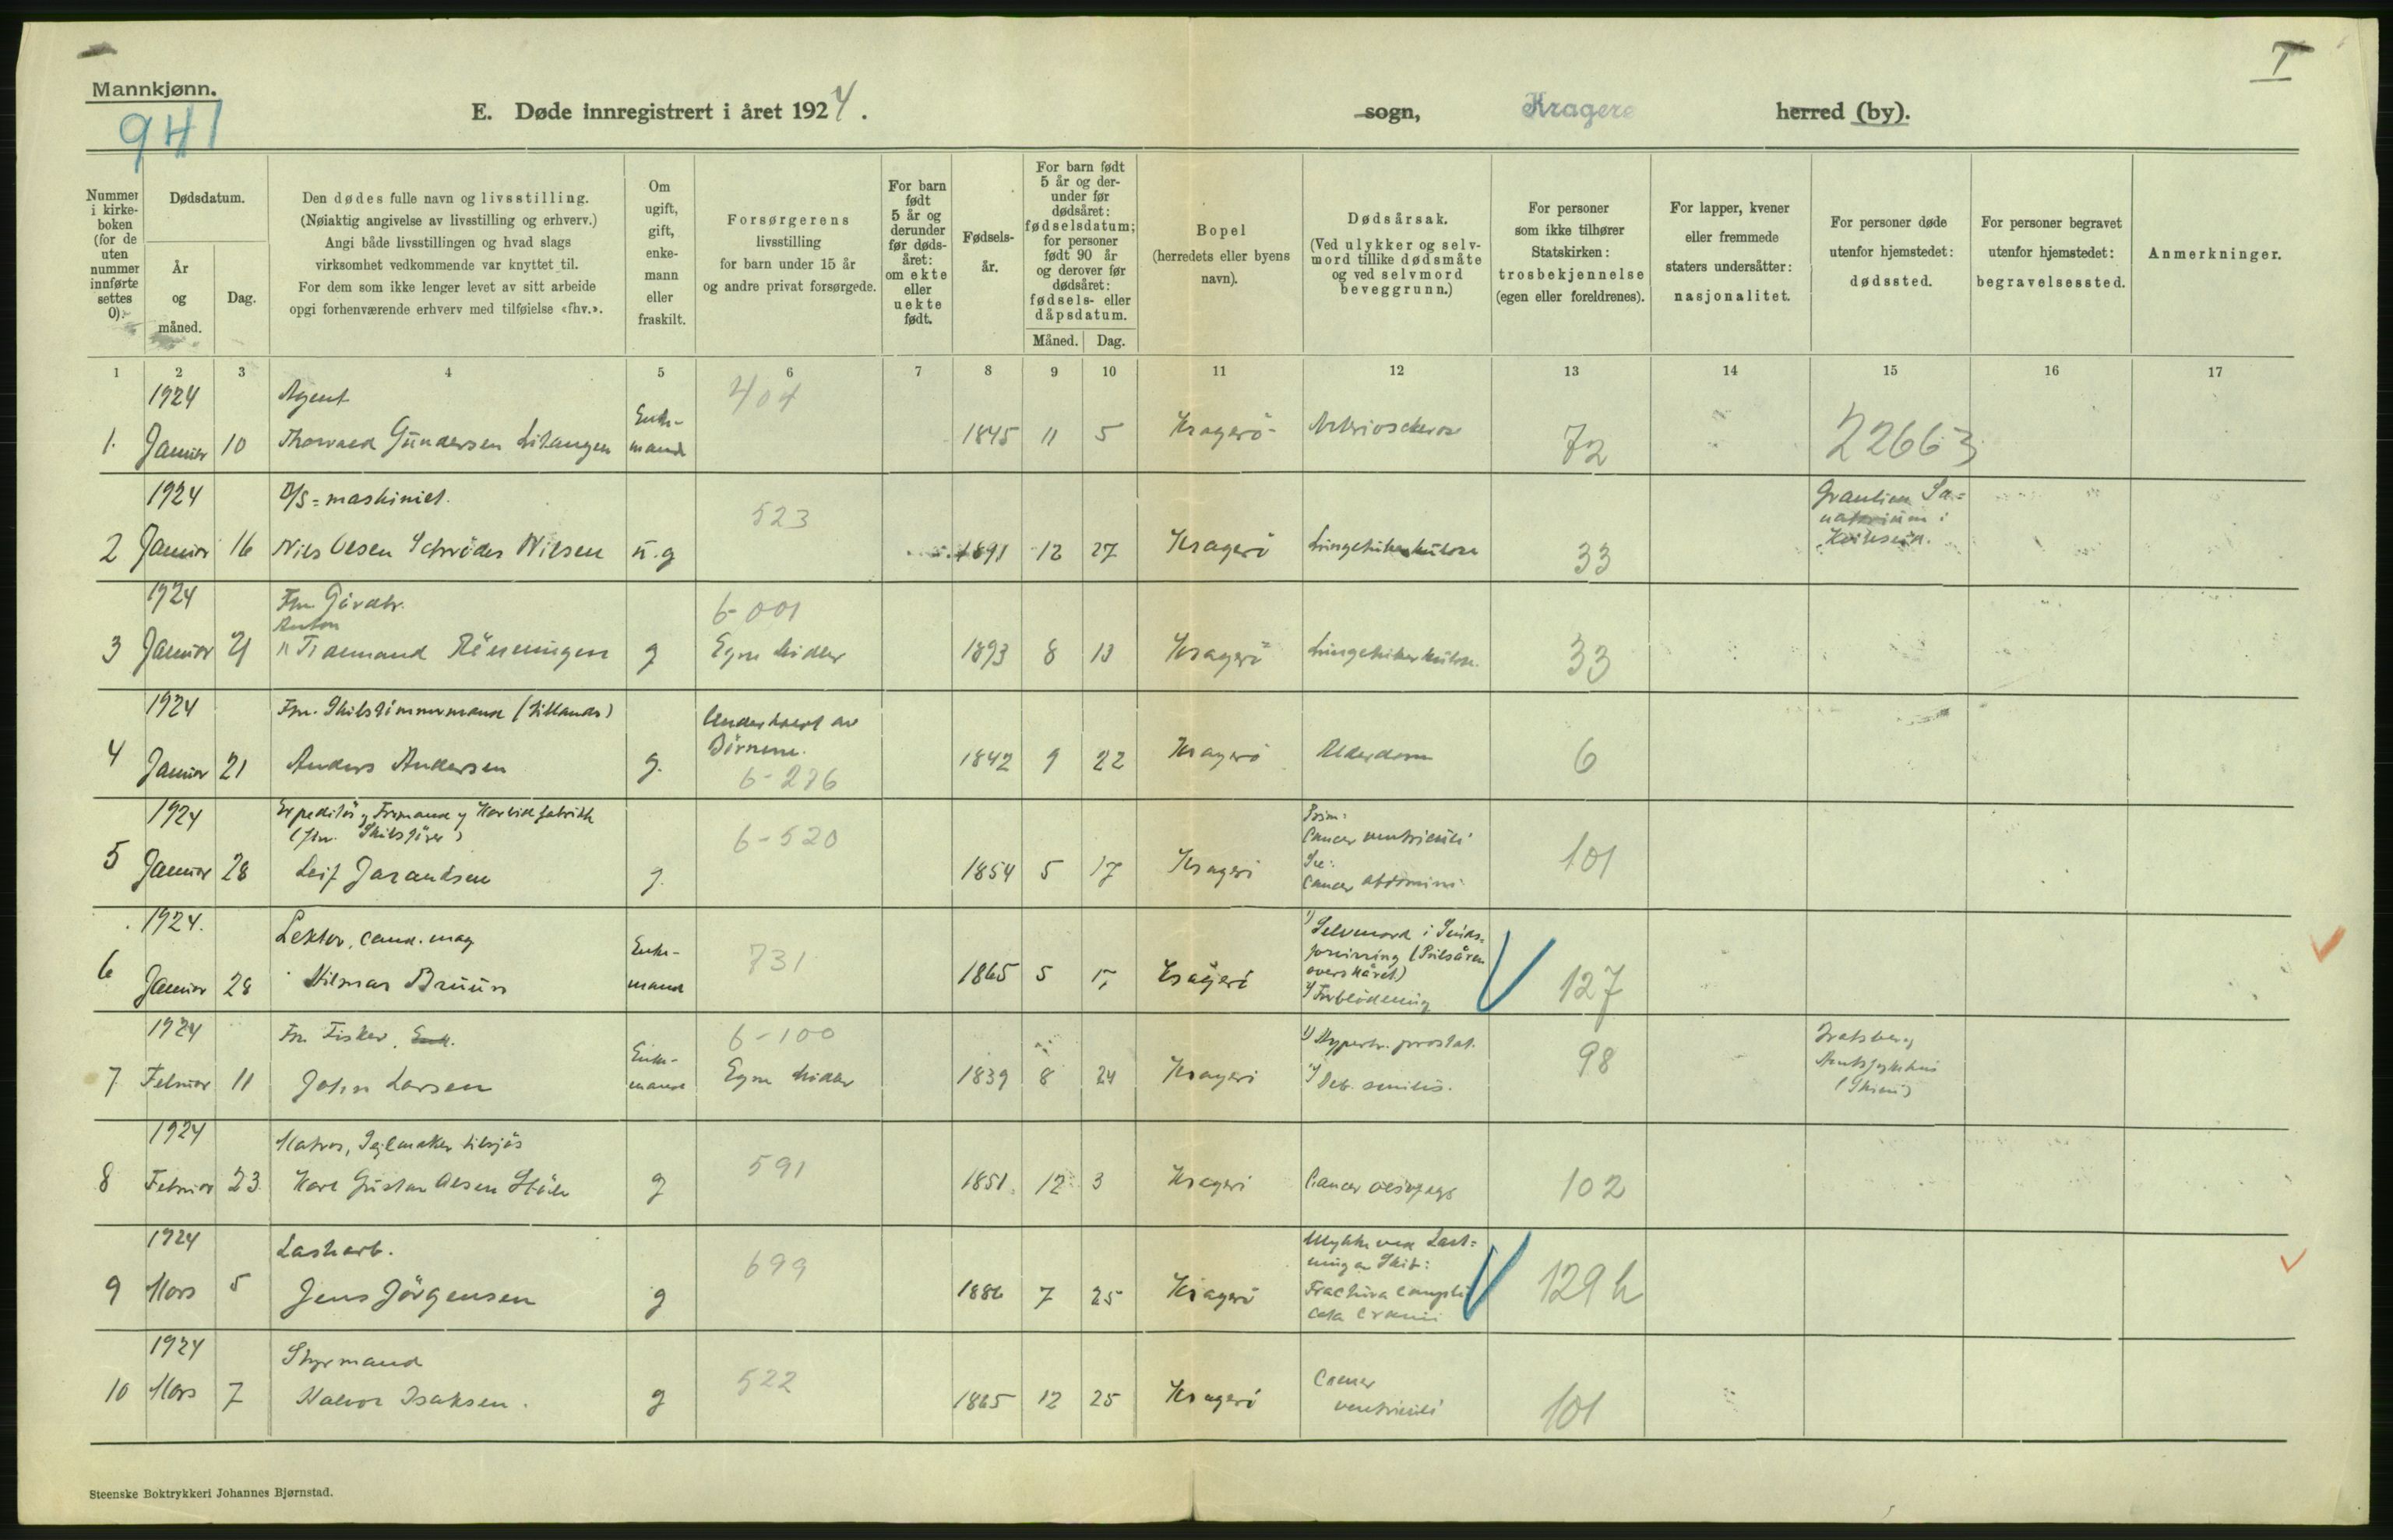 Mannkjønn.
941
E. Døde innregistrert i året 1924.
sogn, Kragerø herred (by).
Nummer i kirkeboken (for de uten nummer innførte settes 0).
Dødsdatum.
År og måned.
Dag.
Den dødes fulle navn og livsstilling.
(Nøiaktig angivelse av livsstilling og erhverv.)
Angi både livsstillingen og hvad slags
virksomhet vedkommende var knyttet til.
For dem som ikke lenger levet av sitt arbeide
opgi forhenværende erhverv med tilføielse «fhv.».
Om ugift, gift, enkemann eller fraskilt.
Forsørgerens
livsstilling
for barn under 15 år
og andre privat forsørgede.
For barn født 5 år og derunder før dødsåret: om ekte eller uekte født.
Fødselsår.
For barn født 5 år og derunder før dødsåret: fødselsdatum; for personer født 90 år og derover før dødsåret: fødsels- eller dåpsdatum.
Måned.
Dag.
Bopel
(herredets eller byens
navn).
Dødsårsak.
(Ved ulykker og selvmord tillike dødsmåte og ved selvmord beveggrunn.)
For personer
som ikke tilhører
Statskirken:
trosbekjennelse
(egen eller foreldrenes).
For lapper, kvener
eller fremmede
staters undersåtter:
nasjonalitet.
For personer døde
utenfor hjemstedet:
dødssted.
For personer begravet
utenfor hjemstedet:
begravelsessted.
Anmerkninger.
1 2 3 4 5 6 7 8 9 10 11 12 13 14 15 16 17
1924 Agent 404
1. Januar 10 Thorvald Gundersen Enkemand 1845 11 5 Kragerø Arteriosclerose 72 22663
1924 D/S=maskinist. 523
2 Januar 16 Nils Olsen Schrøder Nilsen u.g 1891 12 27 Kragerø Lungetuberkulose 33 Sanatorium i
1924 Fhv. Gårdbr. 6-001
Anton
3 Januar 21 Tidemand g Egne Midler 1893 8 13 Kragerø Lungetuberkulose 33
1924 Fhv. Skibstømmermand (tillands) Underholdt av
Børnene.
4 Januar 21 Anders Andersen g. 6-276 1842 9 22 Kragerø Alderdom 6
1924 Expeditør, Formand v Karbidfabrikk
(fhv. Skibsfører) 6-520
5 Januar 28 Leif Jarandsen g. 1854 5 17 Kragerø Prim: Cancer ventriculi Sec: Cancer abdominis 101
1924. Lektor, cand. mag 731
6 Januar 28 Hilmar Bruun Enkemand 1865 5 Kragerø 1) Selvmord i Sinds=
forvirring (Pulsåren
overskåret)
2) Forblødening 127
1924 Fhv. Fisker. Enk. 6-100
7 Februar 11 John Larsen Enkemand Egne Midler 1839 8 24 Kragerø 1) Hypertr. prostat.
2) Deb. senilis. 98 Bratsberg
Amtssykehus
(Skien)
1924 Matros, Sejlmaker tilsjøs 591
8 Februar 23 Karl Gustav Olsen g 1851 12 3 Kragerø Cancer oesofags 102
1924 Lastearb. 699
9 Mars 5 Jens Jørgensen g 1886 7 25 Kragerø Ulykke ved Last=
ning av Skib:
Fractura compli
cata cranii 129 h
1924 Styrmand 522
10 Mars 7 Halvor Isaksen. g 1865 12 25 Kragerø Cancer
ventriculi 101
Steenske Boktrykkeri Johannes Bjørnstad.